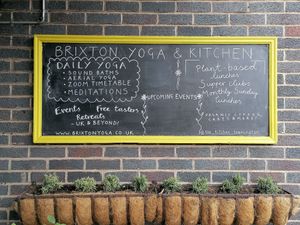 BRIXTON YOGA & KITCHEN
DAILY YOGA
• SOUND BATHS
• AERIAL YOGA
• ZOOM TIMETABLE
• MEDITATIONS
Events Free tasters
Retreats
- UK & BEYOND!
WWW.BRIXTONYOGA.CO.UK
UPCOMING EVENTS
Plant-based
lunches
Supper clubs
Monthly Sunday
lunches